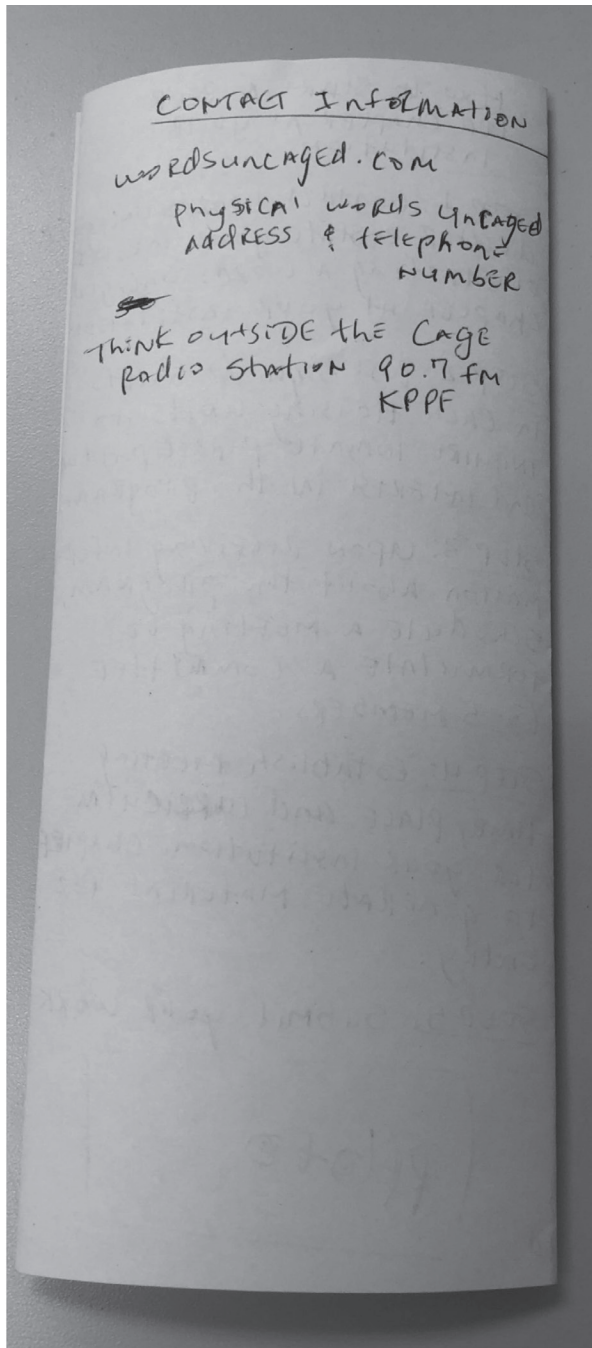 CONTACT InfoRMATION
wORdsuncAgEd.com
physicAl woRds unCAgED
AddRESS & tElEphonE
NumbER
Think outsiDE thE CAgE
RAdio StAtioN 90.7 fm
KPPF